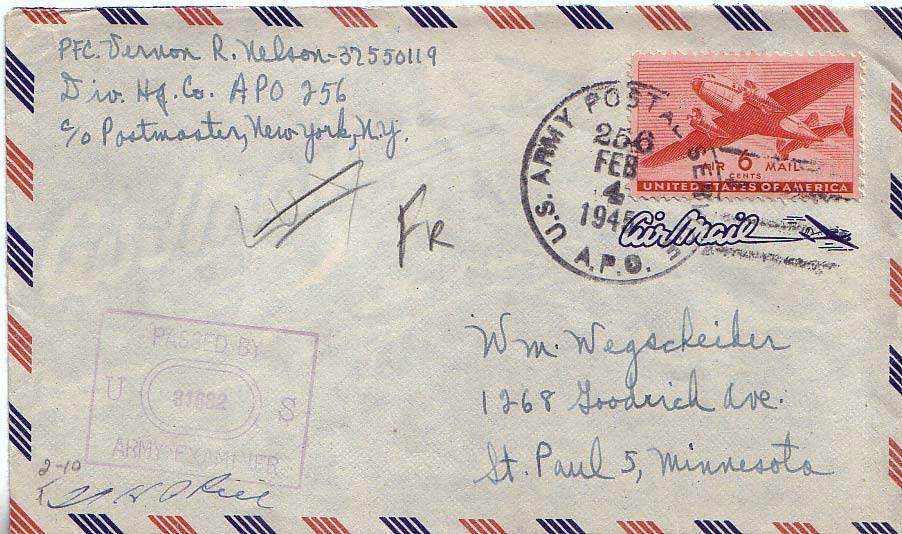 PFC. Vernon R. Nelson-32550119
Div. Hq. Co. APO 256
c/o Postmaster, New York, N.Y.
U.S. ARMY POSTAL
256
FEB
4
1945
A.P.O.
AIR 6 MAIL
CENTS
UNITED STATES OF AMERICA
Air Mail
FR
Wm. Wegscheider
1268 Goodrich Ave.
St. Paul 5, Minnesota
PASSED BY
U S
ARMY EXAMINER
2-10